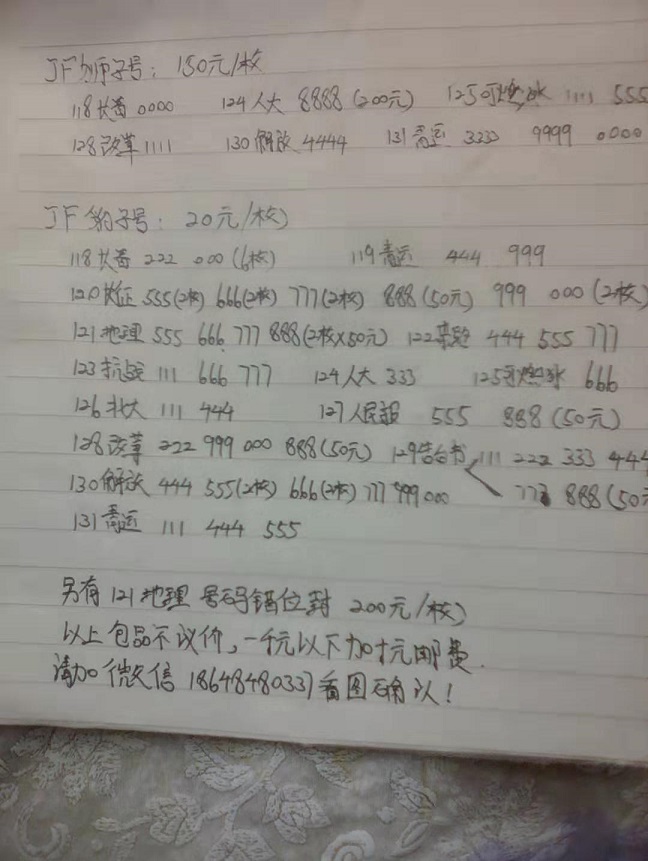 JF狮子号：150元/枚
118共善 0000 124人大 8888(200元) 125可燃冰 1111 555
128改革 1111 130解放 4444 131青运 3333 9999 0000
JF豹子号：20元/枚
118共善 222 000(6枚) 119青运 444 999
120长征 555(2枚) 666(2枚) 777(2枚) 888(50元) 999 000(2枚)
121地理 555 666 777 888(2枚x50元) 122 444 555 777
123抗战 111 666 777 124人大 333 125可燃冰 666
126北大 111 444 127人民报 555 888(50元)
128改革 222 999 000 888(50元) 129告台书 111 222 333 444
130解放 444 555(2枚) 666(2枚) 777 999 000 777 888(50元
131青运 111 444 555
另有121地理 号码错位封 200元/枚
以上包品不议价，一千元以下加十元邮费.
请加微信 18648480337看图确认！